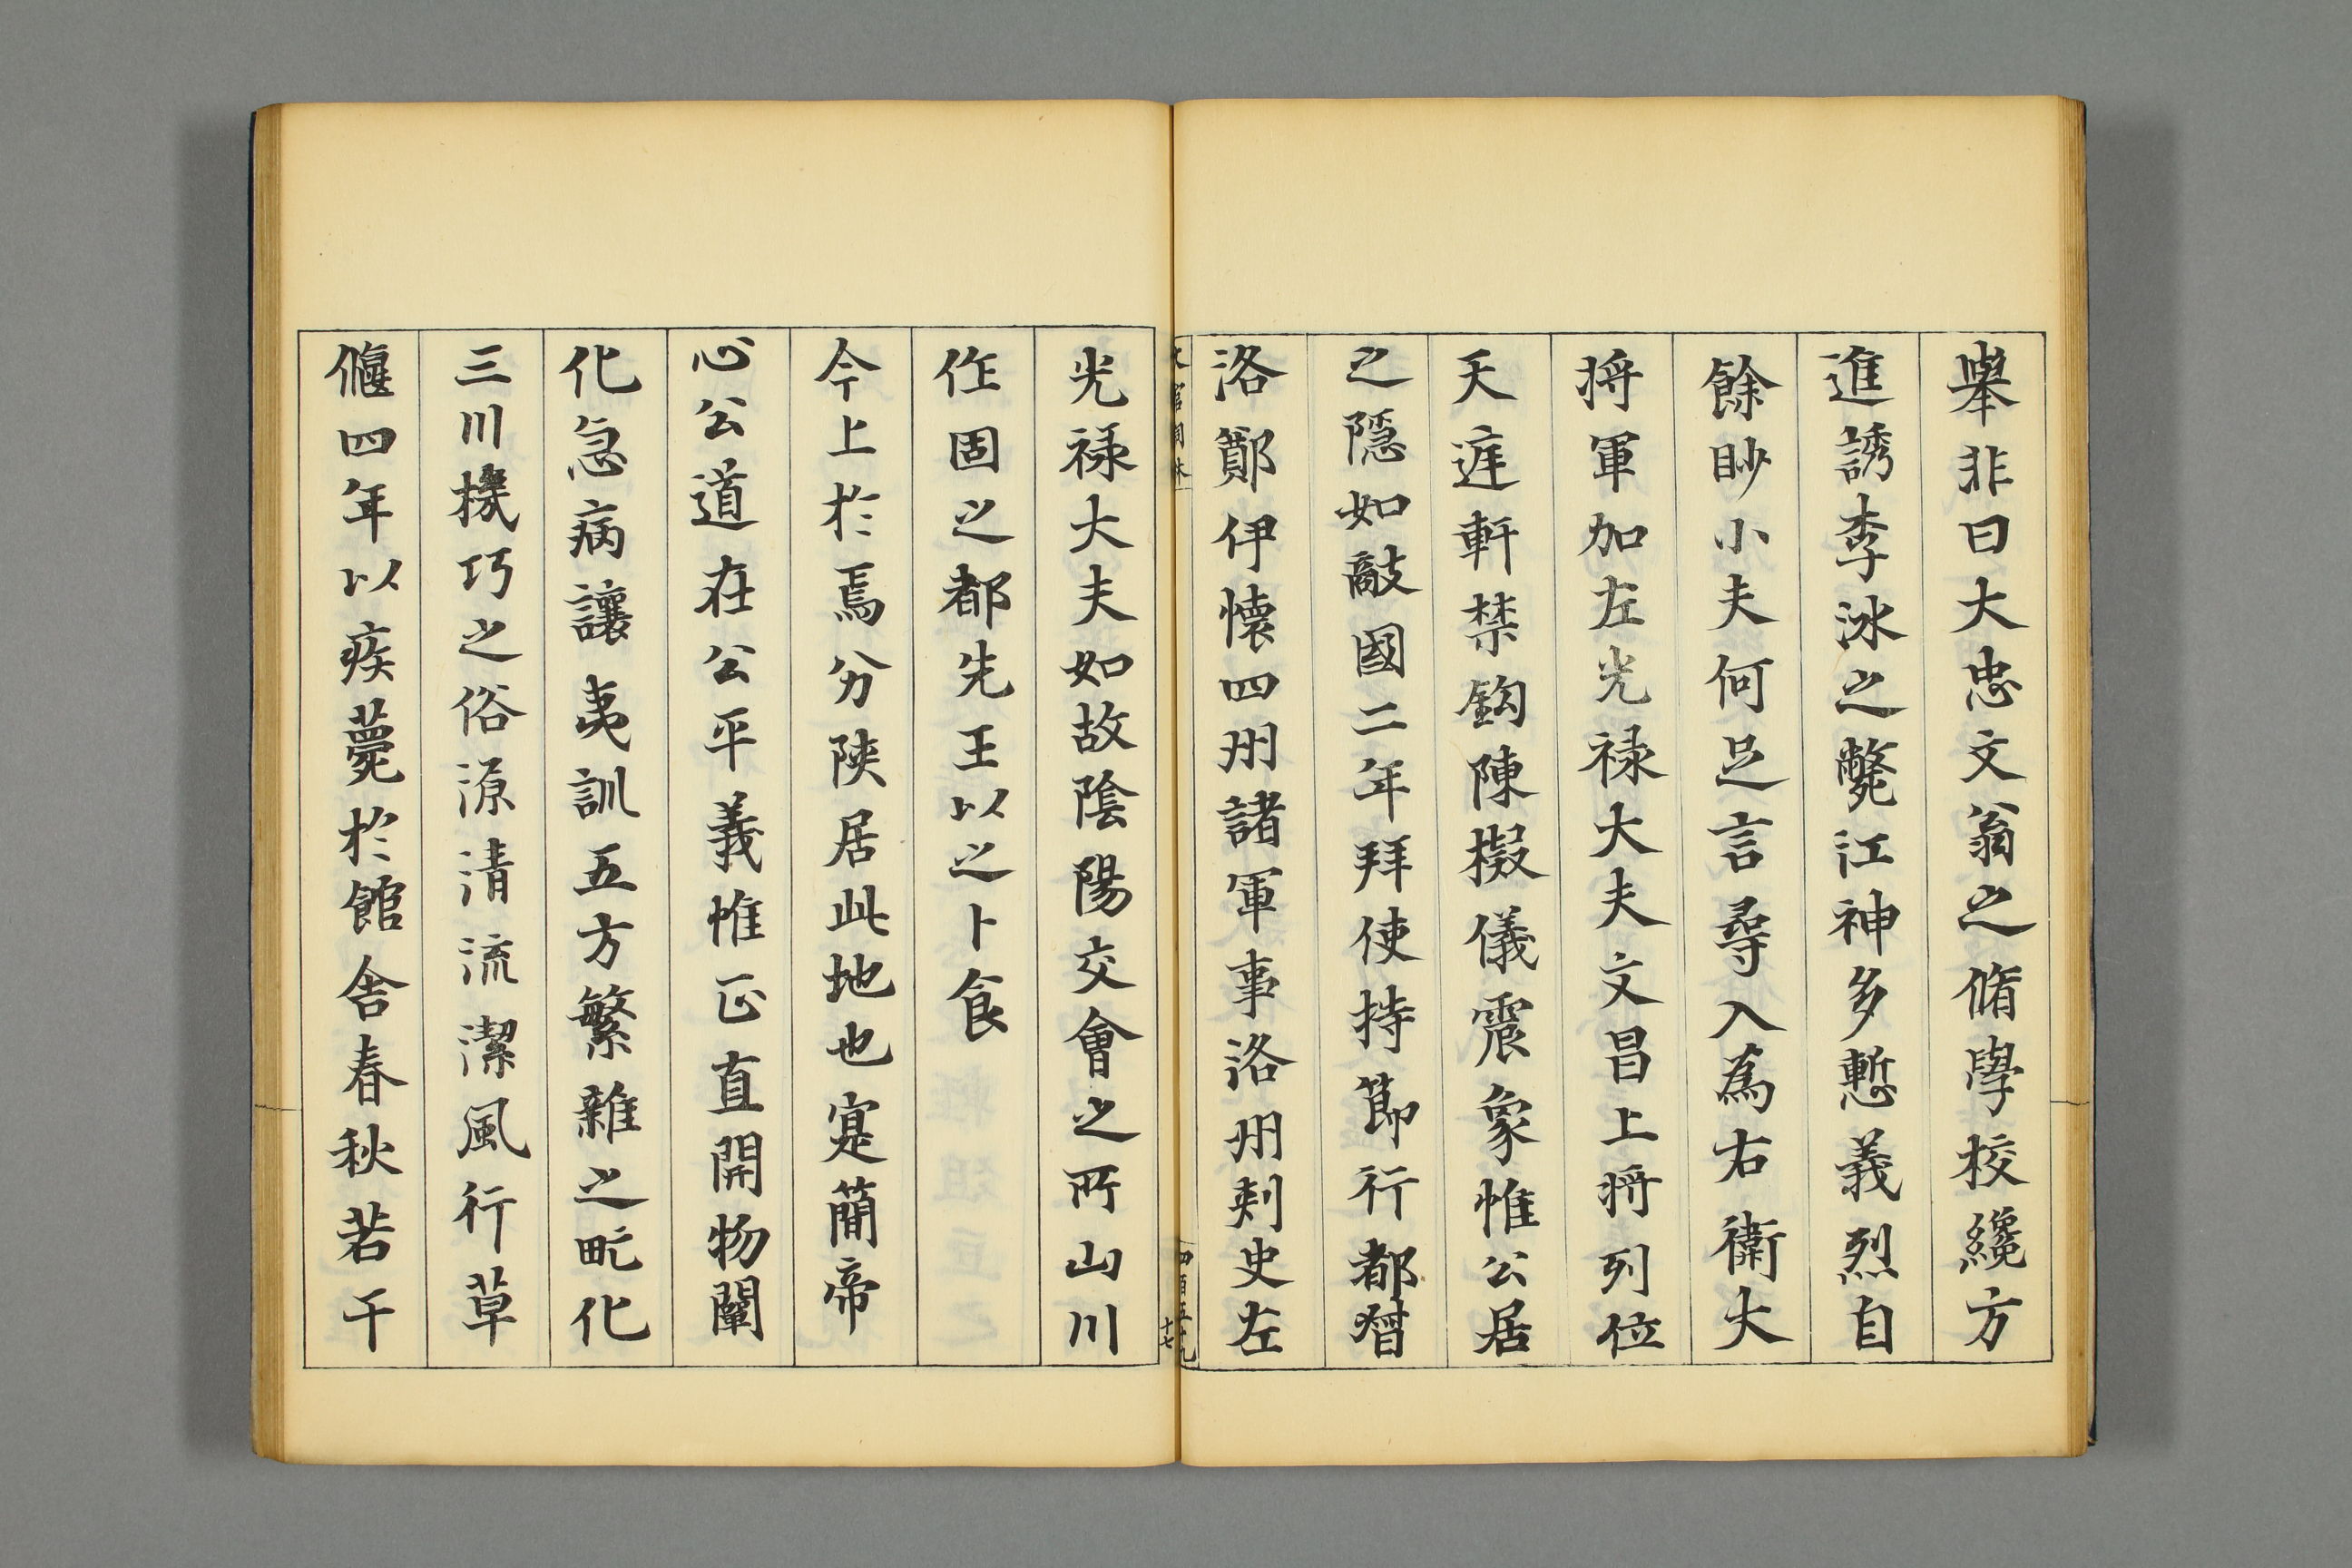 舉非曰大忠文翁之脩學校纔方
進誘李冰之斃江神多慙義烈自
餘眇小夫何足言尋入為右衛大
將軍加左光禄大夫文昌上將列位
天庭軒禁鈎陳擬儀震象惟公居
之隱如敵國二年拜使持節行都督
洛鄭伊懷四州諸軍事洛州刺史左
光禄大夫如故陰陽交會之所山川
作固之都先王以之卜食
今上於焉分陝居此地也寔簡帝
心公道在公平義惟正直開物闡
化急病讓夷訓五方繁雜之甿化
三川機巧之俗源清流潔風行草
偃四年以疾薨於館舍春秋若干
文館詞林
四百五十九
十七